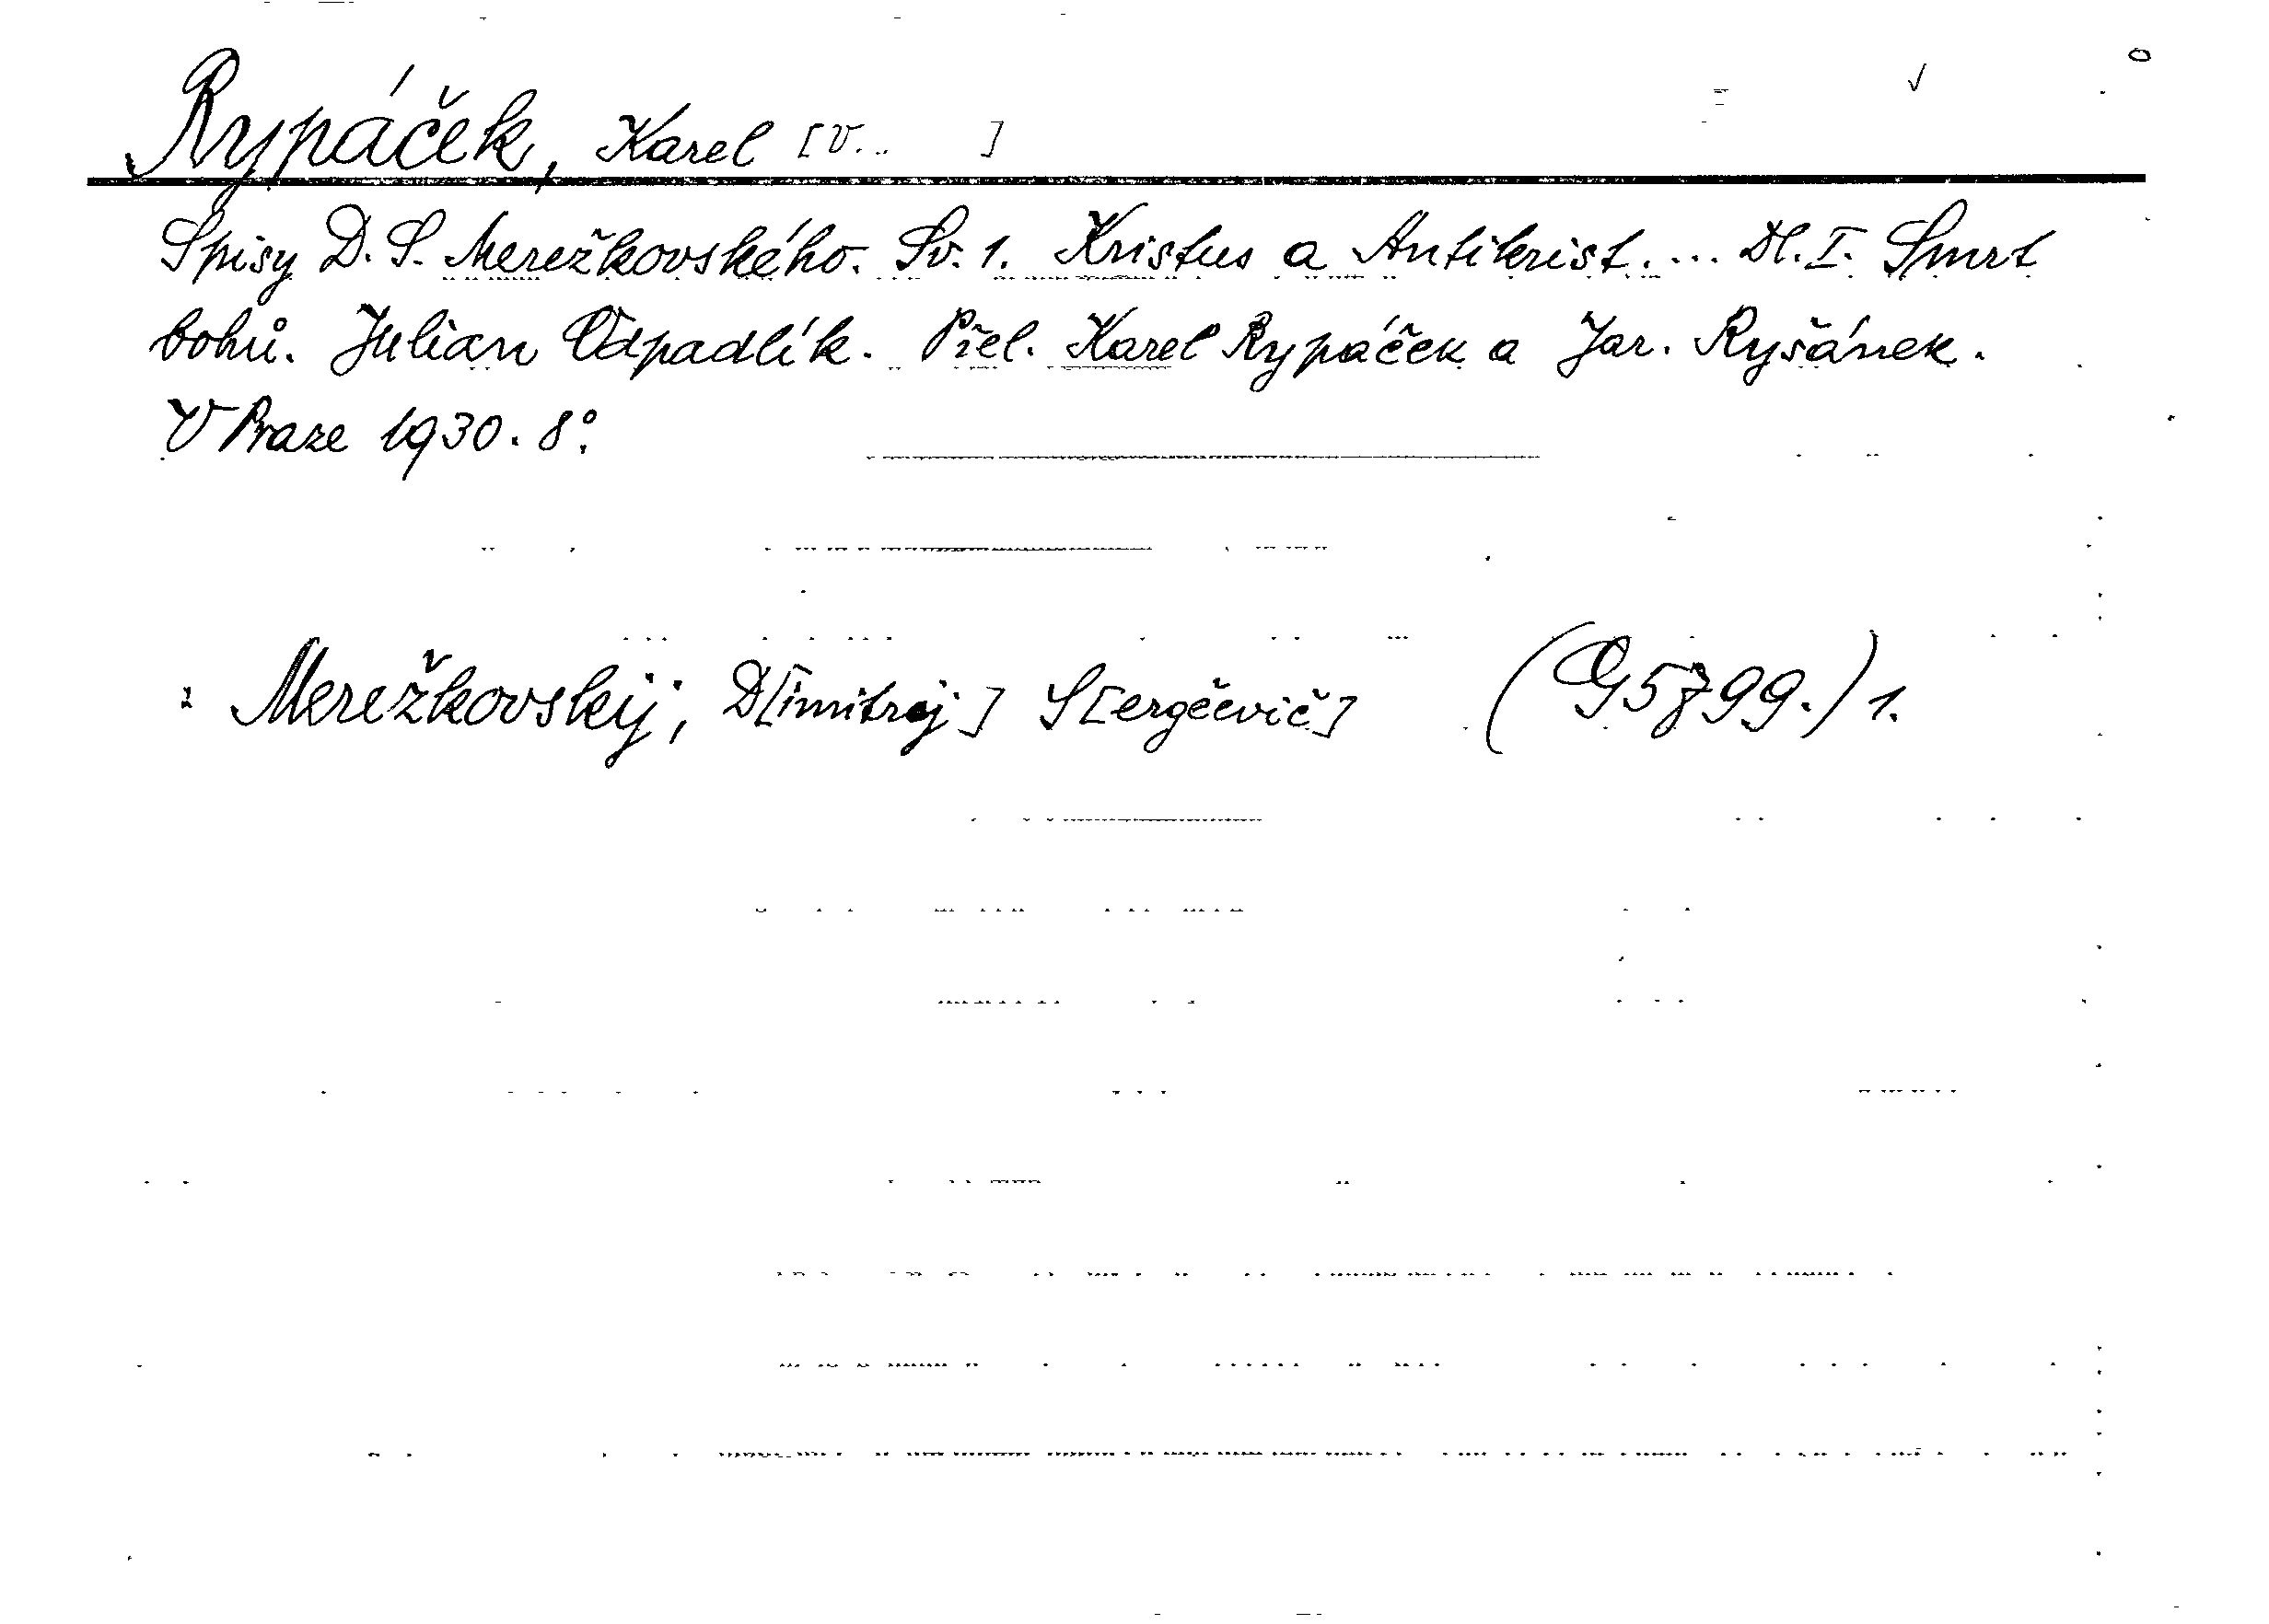 Rypáček, Karel [V.. ]
Spisy D. S. Merežkovského. Sv. 1. Kristus a Antikrist. ... Dl. I. Smrt
bohů. Julian Odpadlík. Přel. Karel Rypáček a Jar. Ryšánek.
V Praze 1930. 8°.
: Merežkovskij, D[imitrej] S[ergěevič] (G 5799.) 1.